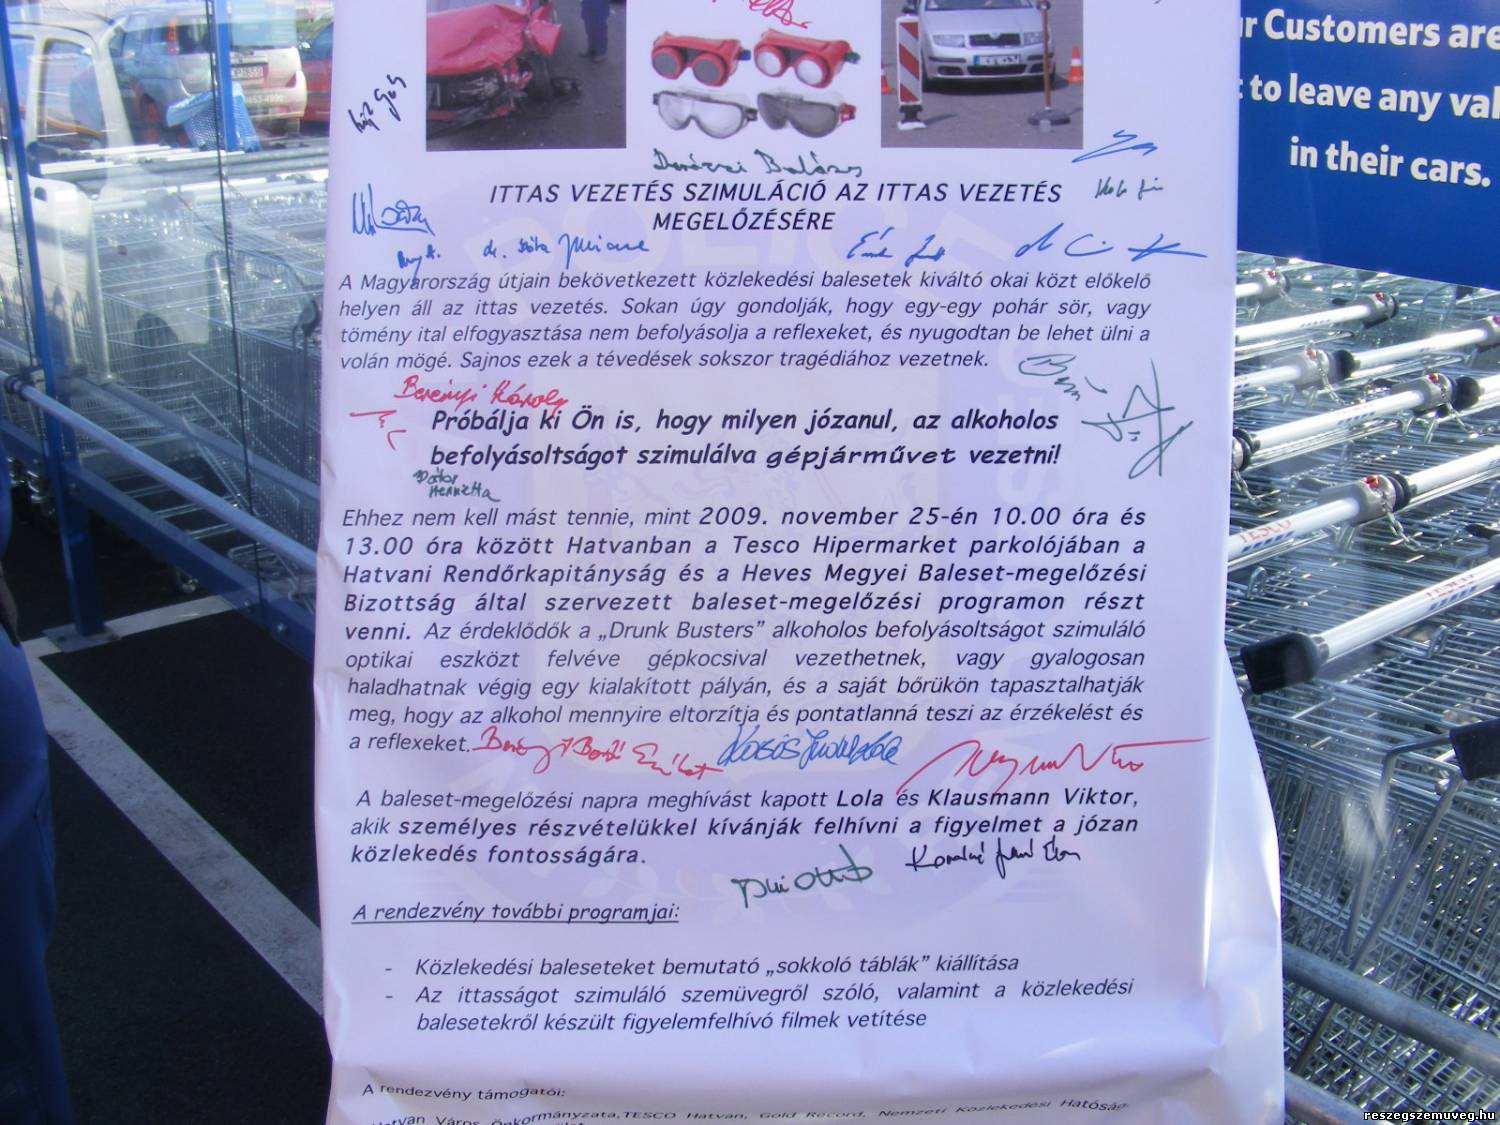 ur Customers are
to leave any val
in their cars.
ITTAS VEZETÉS SZIMULÁCIÓ AZ ITTAS VEZETÉS
MEGELŐZÉSÉRE
A Magyarország útjain bekövetkezett közlekedési balesetek kiváltó okai közt előkelő
helyen áll az ittas vezetés. Sokan úgy gondolják, hogy egy-egy pohár sör, vagy
tömény ital elfogyasztása nem befolyásolja a reflexeket, és nyugodtan be lehet ülni a
volán mögé. Sajnos ezek a tévedések sokszor tragédiához vezetnek.
Berényi Károly
Próbálja ki Ön is, hogy milyen józanul, az alkoholos
befolyásoltságot szimulálva gépjárművet vezetni!
Henrietta
Ehhez nem kell mást tennie, mint 2009. november 25-én 10.00 óra és
13.00 óra között Hatvanban a Tesco Hipermarket parkolójában a
Hatvani Rendőrkapitányság és a Heves Megyei Baleset-megelőzési
Bizottság által szervezett baleset-megelőzési programon részt
venni. Az érdeklődők a „Drunk Busters” alkoholos befolyásoltságot szimuláló
optikai eszközt felvéve gépkocsival vezethetnek, vagy gyalogosan
haladhatnak végig egy kialakított pályán, és a saját bőrükön tapasztalhatják
meg, hogy az alkohol mennyire eltorzítja és pontatlanná teszi az érzékelést és
a reflexeket.
A baleset-megelőzési napra meghívást kapott Lola és Klausmann Viktor,
akik személyes részvételükkel kívánják felhívni a figyelmet a józan
közlekedés fontosságára.
A rendezvény további programjai:
- Közlekedési baleseteket bemutató „sokkoló táblák” kiállítása
- Az ittasságot szimuláló szemüvegről szóló, valamint a közlekedési
balesetekről készült figyelemfelhívó filmek vetítése
A rendezvény támogatói:
Város Önkormányzata, TESCO Hatvan, Gold Record, Nemzeti Közlekedési Hatóság
TESCO
reszegszemuveg.hu